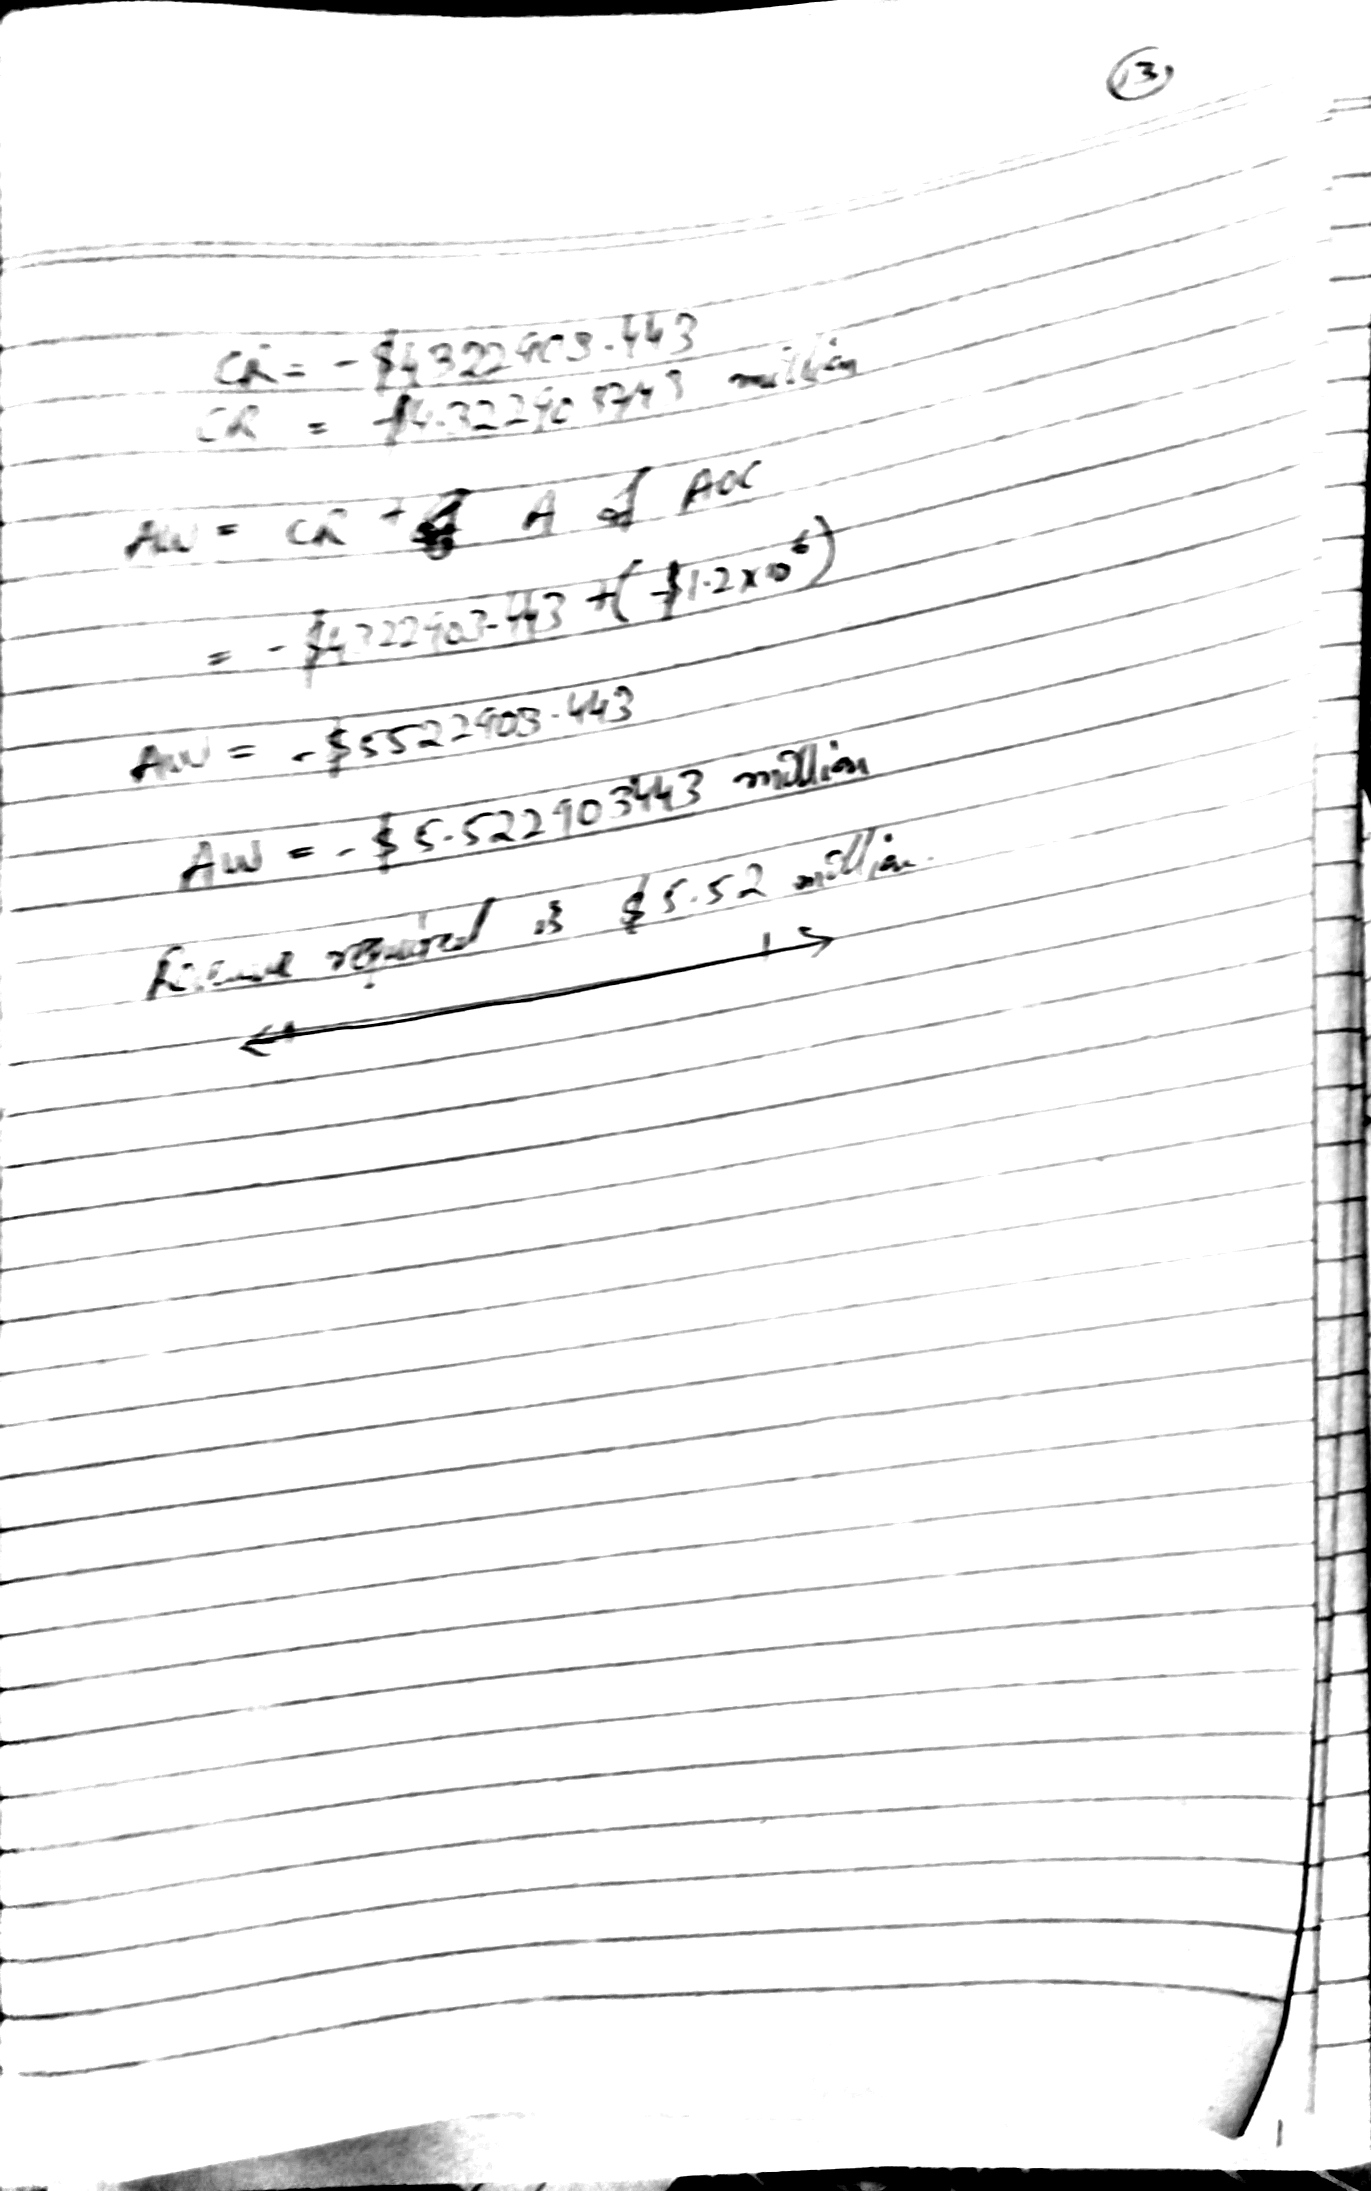 13
CR = -$4322903.443
CR = -$4.322903443 million
AW = CR + A of AOC
= -$4322903.443 + (-$1.2x10⁶)
AW = -$5522903.443
AW = -$5.522903443 million
required is $5.52 million.